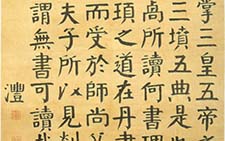 掌三皇五帝
三墳五典是也
卨所讀何書理
頊之道在丹書
而受於師尚父
夫子所以見
謂無書可讀
澧